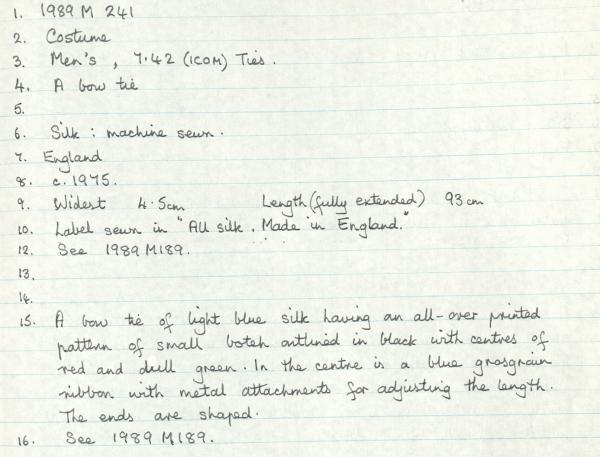 1. 1989 M 241
2. Costume
3. Men's, 7.42 (ICOM) Ties.
4. A bow tie
5.
6. Silk : machine sewn.
7. England
8. c.1975.
9. Widest 4.5cm Length (fully extended) 93 cm
10. Label sewn in "All silk. Made in England."
12. See 1989 M189.
13.
14.
15. A bow tie of light blue silk having an all-over printed
pattern of small boteh outlined in black with centres of
red and dull green. In the centre is a blue grosgrain
ribbon with metal attachments for adjusting the length.
The ends are shaped.
16. See 1989 M189.